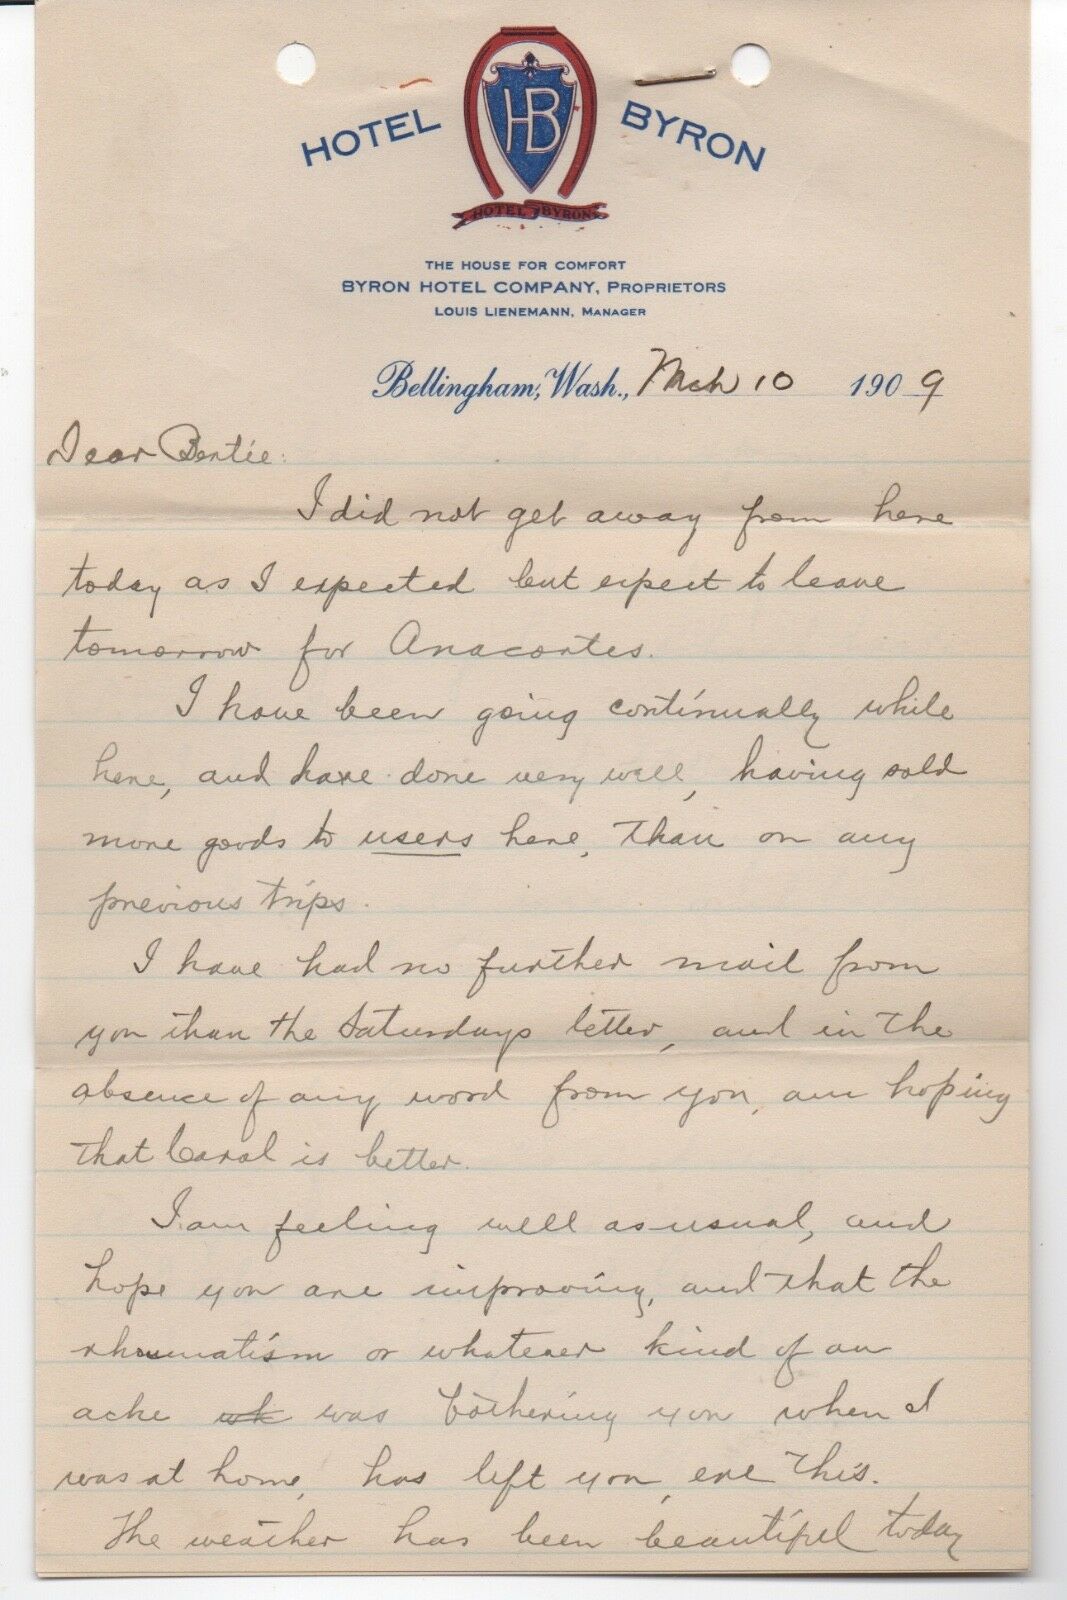 HOTEL BYRON
HB
HOTEL BYRON
THE HOUSE FOR COMFORT
BYRON HOTEL COMPANY, PROPRIETORS
LOUIS LIENEMANN, MANAGER
Bellingham, Wash., Mch 10 1909
Dear Bertie:
I did not get away from here
today as I expected but expect to leave
tomorrow for Anacortes.
I have been going continually while
here, and have done very well, having sold
more goods to users here, than on any
previous trips.
I have had no further mail from
you than the Saturdays letter, and in the
absence of any word from you, am hoping
that Caral is better.
I am feeling well as usual, and
hope you are improving, and that the
rheumatism or whatever kind of an
ache wh was bothering you when I
was at home, has left you, ere this.
The weather has been beautiful today